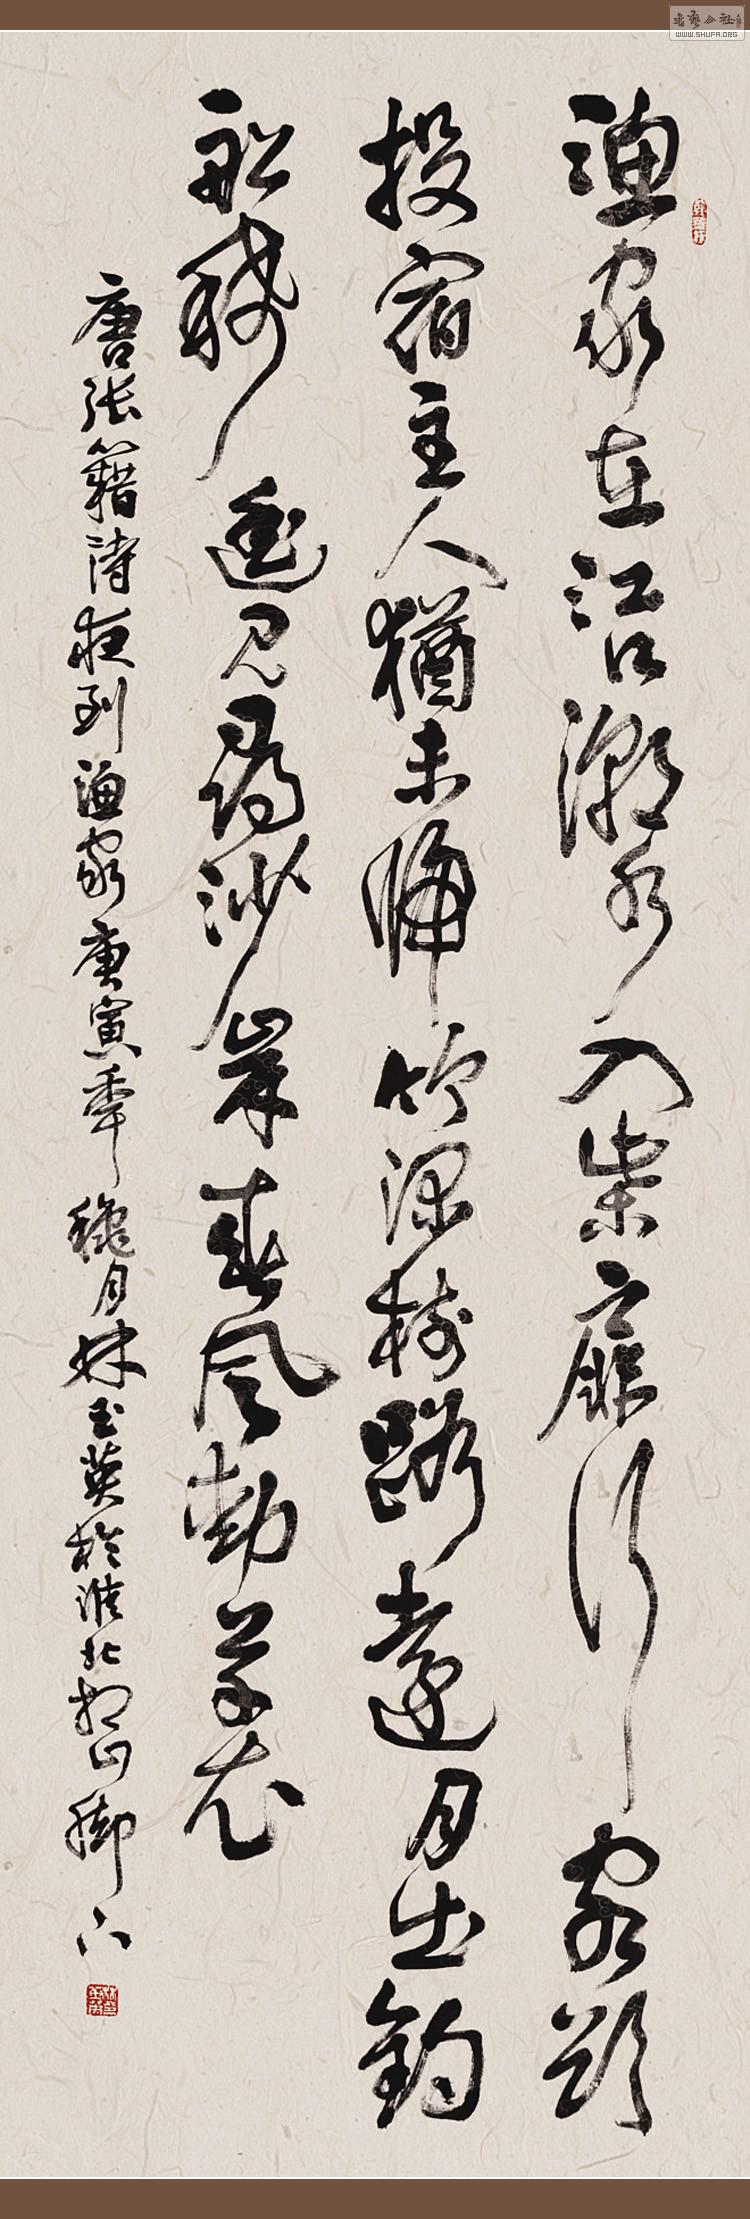 漁家在江口潮水入柴扉行客欲
投宿主人猶未歸竹深村路遠月出釣
船稀遥見尋沙岸春風動草衣
唐張籍詩夜到漁家庚寅年穐月林玉英於淮北相山脚下
WWW.SHUFA.ORG